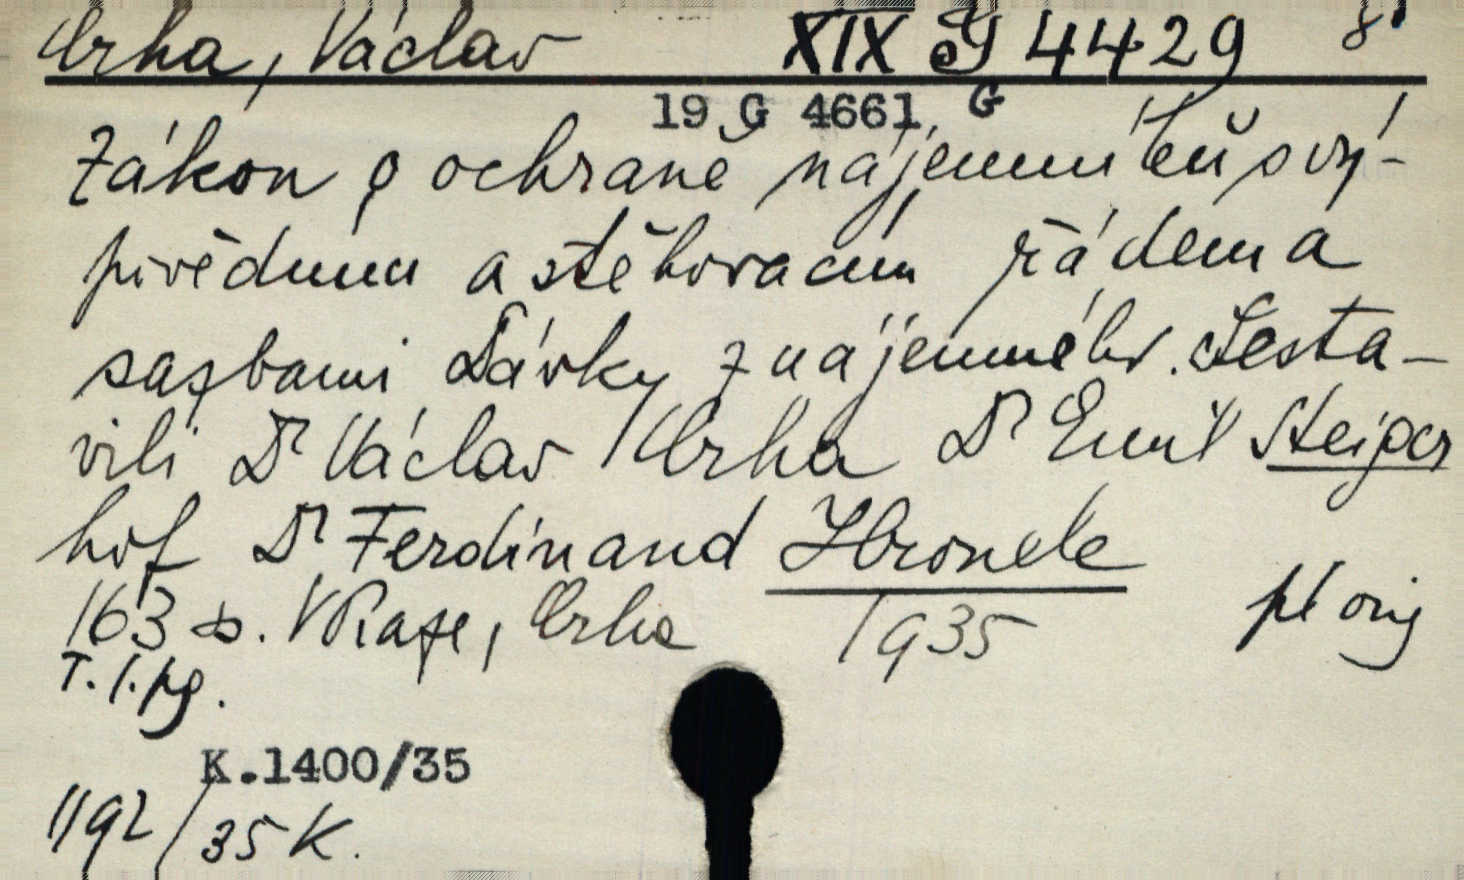 Crha, Václav XIX G 4429 8°
19 G 4661, G
Zákon o ochraně nájemníků s vý-
povědním a stěhovacím řádem a
sazbami dávky z nájemného. Sesta-
vili Dr Václav Crha Dr Emil Steiger
hof Dr Ferdinand Hronek
163 s. V Praze, Crha 1935 pl orig
T. l. pg.
K.1400/35
1192/35 K.